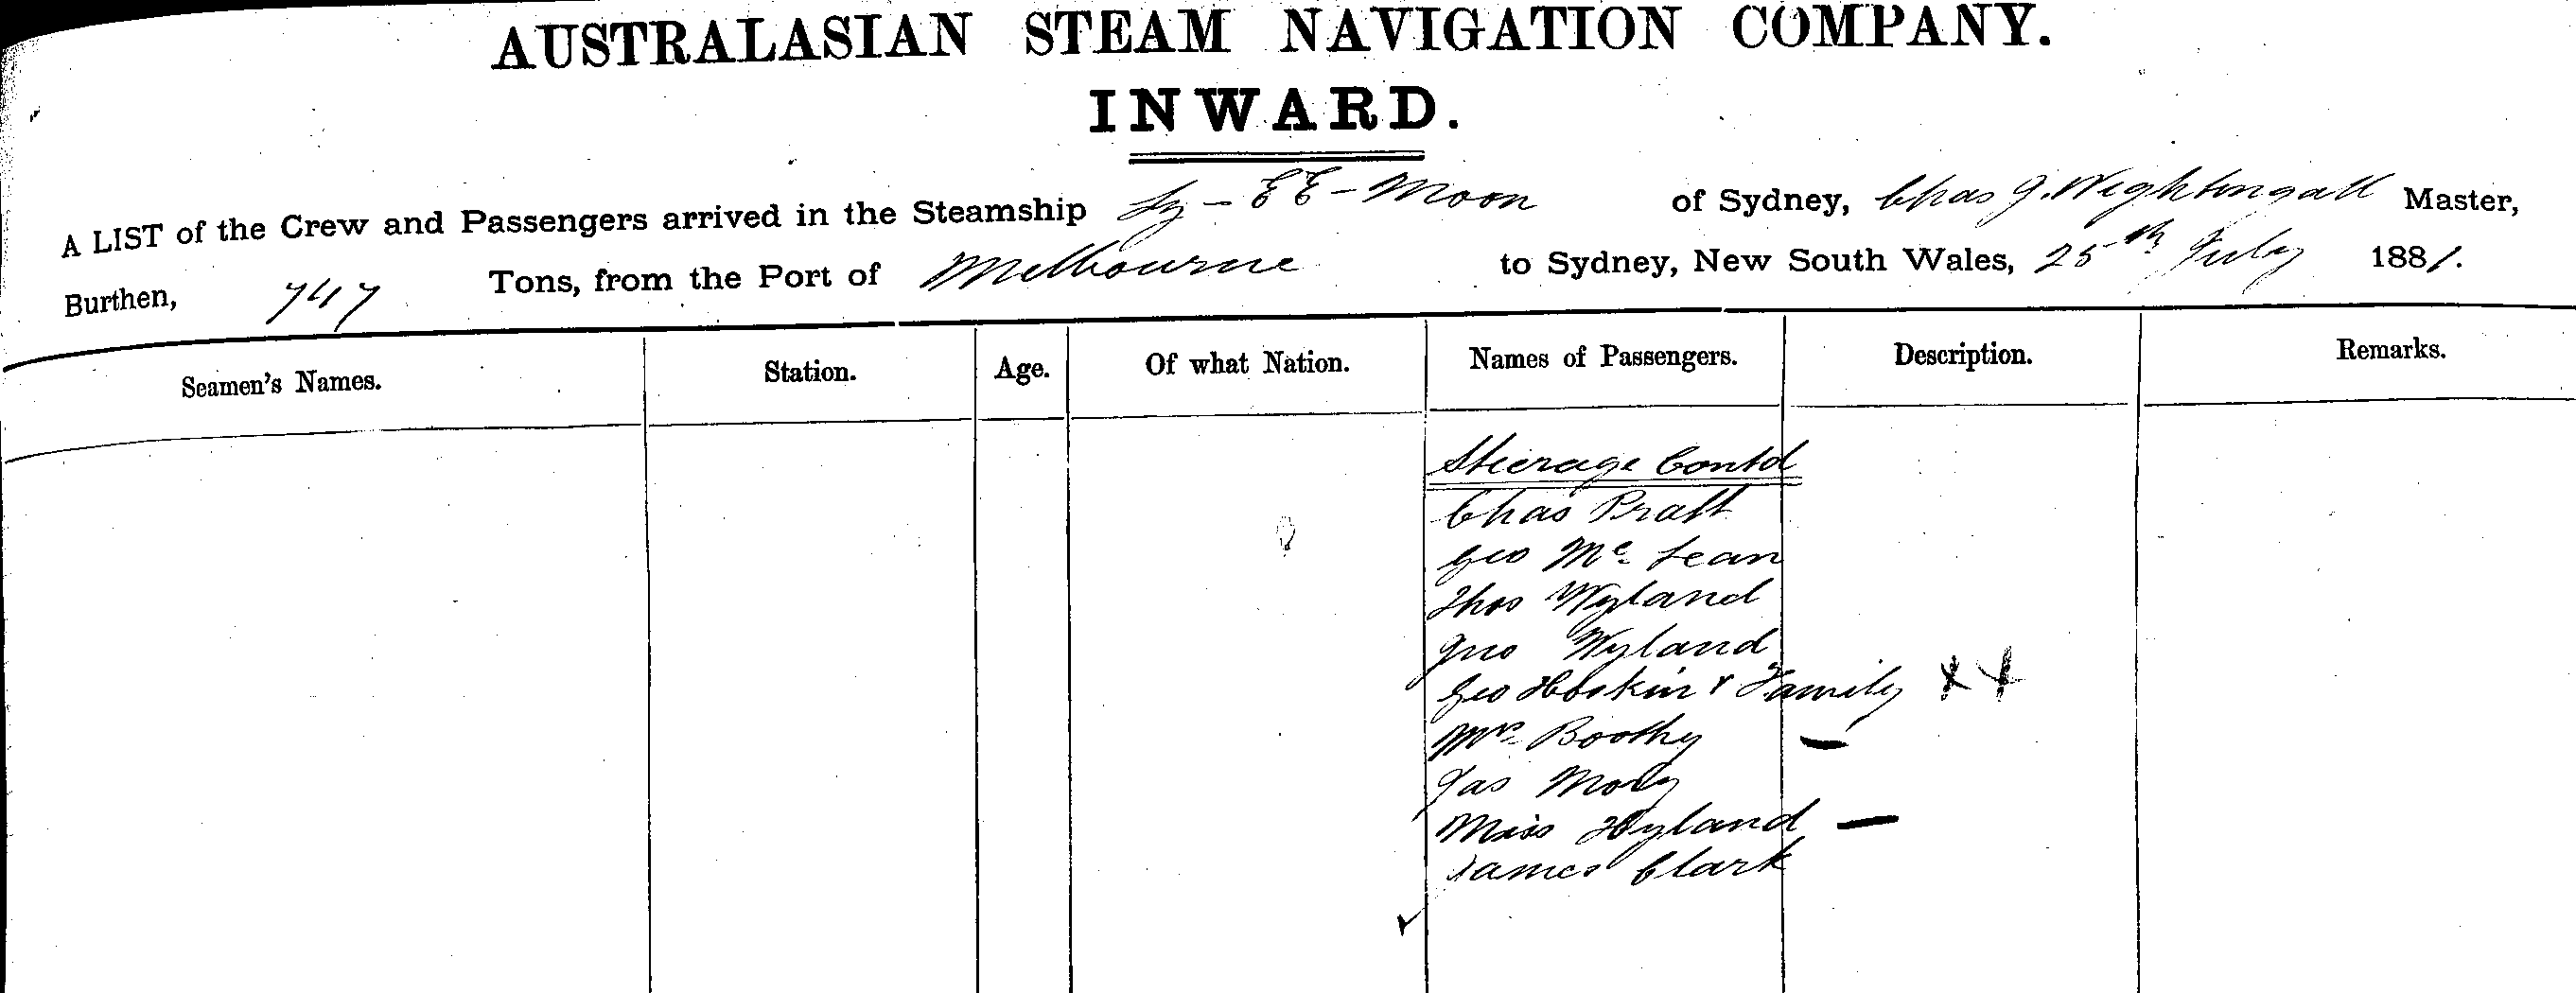 AUSTRALASIAN STEAM NAVIGATION COMPANY.
INWARD.
A LIST of the Crew and Passengers arrived in the Steamship Ly-EE-Moon of Sydney, Chas G. Nightingall Master,
Burthen, 747 Tons, from the Port of Melbourne to Sydney, New South Wales, 25th July 1881.
Seamen's Names. Station. Age. Of what Nation. Names of Passengers. Description. Remarks.
Steerage Contd
Chas Pratt
Geo Mc Lean
Thos Wyland
Jno Wyland
Geo Hoskin & Family XX
Boothy —
Jas
Miss Hyland —
James Clark